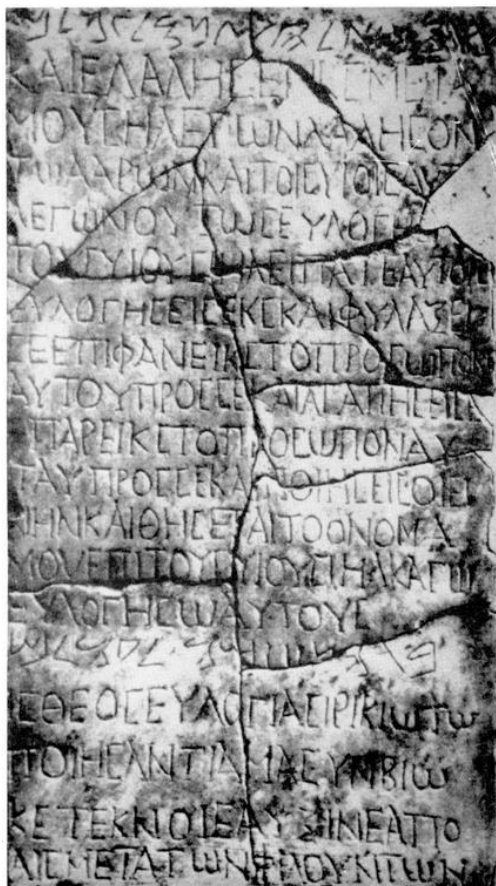 ࠁࠓࠅࠊ ࠀࠋࠄࠉࠍࠅ ࠋࠏࠅࠋࠌ
ΚΑΙ ΕΛΑΛΗϹΕΝ ΚϹ ΜΕΤΑ
ΜΟΥϹΗ ΛΕΓΩΝ ΛΑΛΗϹΟΝ
ΤΩ ΑΑΡΩΝ ΚΑΙ ΤΟΙϹ ΥΙΟΙϹ ΑΥΤ
ΛΕΓΩΝ ΟΥΤΩϹ ΕΥΛΟΓΗ
ΤΟΥϹ ΥΙΟΥϹ ΙΗΛ ΕΙΠΑΤΕ ΑΥΤΟΙ
ΕΥΛΟΓΗϹΕΙ ϹΕ ΚϹ ΚΑΙ ΦΥΛΑΞΕΙ
ϹΕ ΕΠΙΦΑΝΕΙ ΚϹ ΤΟ ΠΡΟϹΩΠΟΝ
ΑΥΤΟΥ ΠΡΟϹ ϹΕ ΚΑΙ ΑΓΑΠΗϹΕΙ ϹΕ
ΕΠΑΡΕΙ ΚϹ ΤΟ ΠΡΟϹΩΠΟΝ ΑΥ
ΤΟΥ ΠΡΟϹ ϹΕ ΚΑΙ ΠΟΙΗϹΕΙ ϹΟΙ ΕΙ
ΡΗΝΗΝ ΚΑΙ ΘΗϹΕΤΑΙ ΤΟ ΟΝΟΜΑ
ΜΟΥ ΕΠΙ ΤΟΥϹ ΥΙΟΥϹ ΙΗΛ ΚΑΓΩ
ΕΥΛΟΓΗϹΩ ΑΥΤΟΥϹ
ࠁࠓࠅࠊ ࠔࠌࠅ ࠋࠏࠅࠋࠌ
ΙϹ ΘΕΟϹ ΕΥΛΟΓΙΑ ϹΙΡΙΚΙΩ ΤΩ
ΠΟΙΗϹΑΝΤΙ ΑΜΑ ϹΥΝΒΙΩ
ΚΕ ΤΕΚΝΟΙϹ ΑΥΞΙ ΝΕΑΠΟ
ΛΙϹ ΜΕΤΑ ΤΩΝ ΦΙΛΟΥΝΤΩΝ